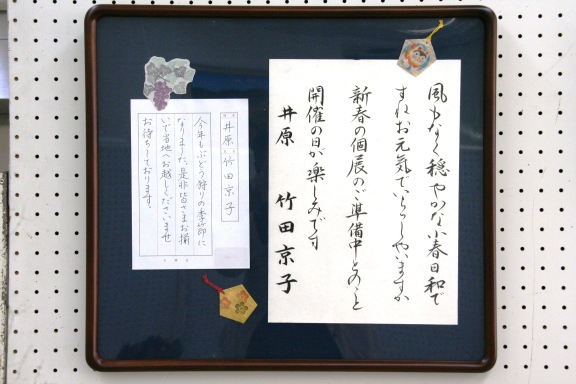 風もなく穏やかな小春日和で
すねお元気でいらっしゃいますか
新春の個展のご準備中とのこと
開催の日が楽しみです
井原 竹田京子
井原 竹田京子
今年もぶどう狩りの季節に
なりました。是非皆さまお揃
いで当地へお越しくださいませ
お待ちしております。